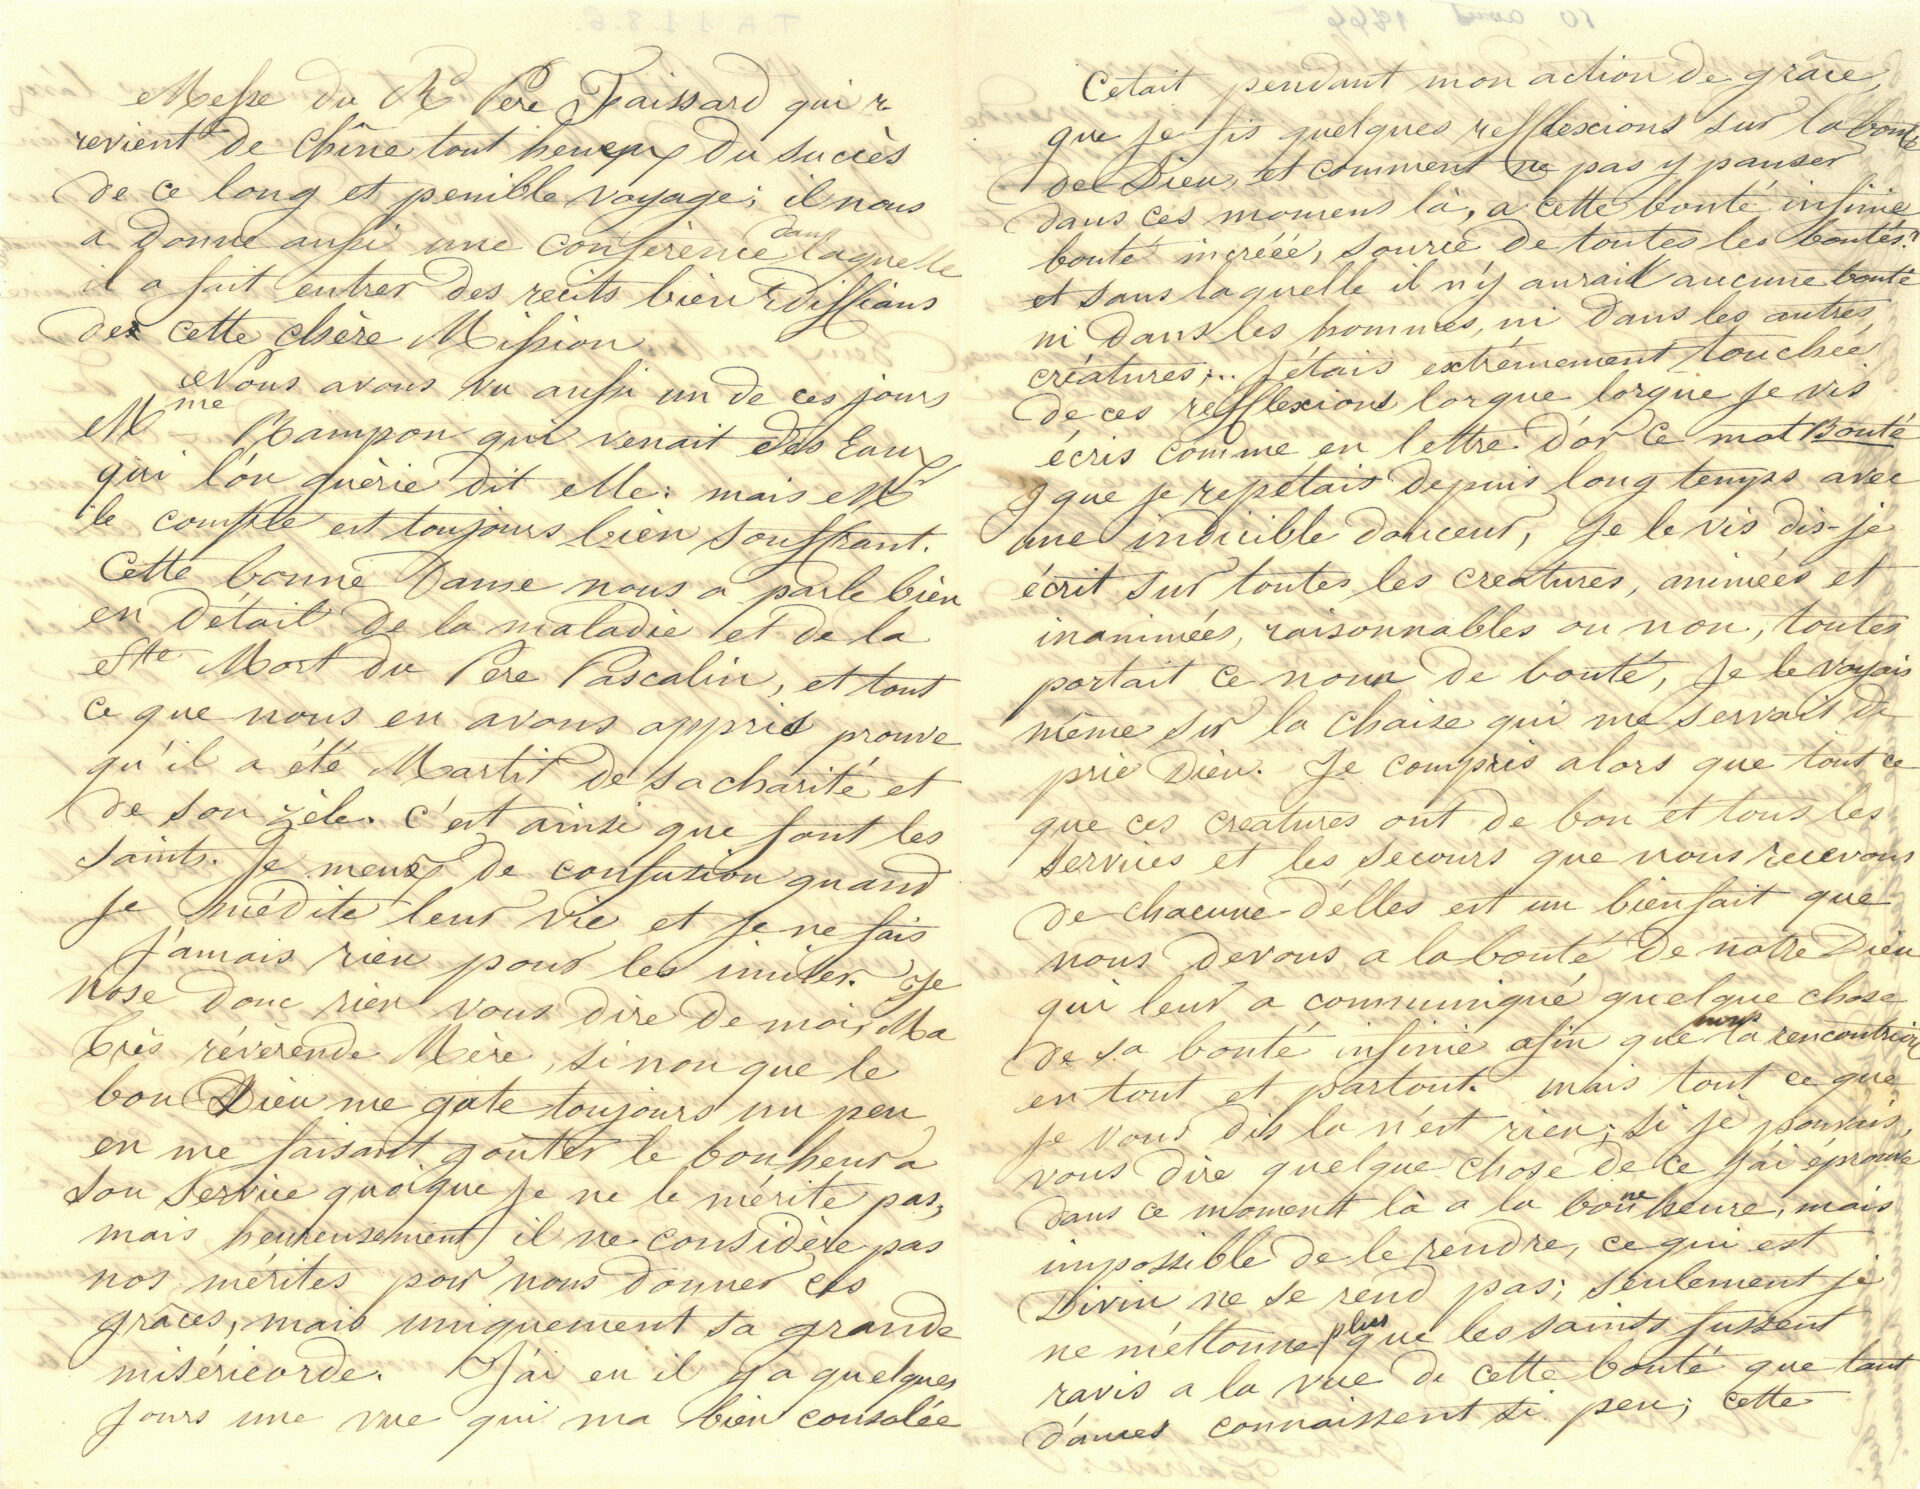 Messe du R Père Fraissard qui r
revient de Chîne tout heureux du succès
de ce long et penible voyage; il nous
a donne aussi une conférence dans laquelle
il a fait entrer des recits bien édiffians
de cette chère Mission
Nous avons vu aussi un de ces jours
Mme Rampon qui venait des Eaux
qui l'on guèrie dit elle: mais Mr
le compte est toujours bien souffrant.
Cette bonne Dame nous a parle bien
en détail de la maladie et de la
Ste Mort du Père Pascalin, et tout
ce que nous en avons appris prouve
qu'il a été Martir de sa charité et
de son zèle. c'est ainsi que font les
saints. Je meurs de confusion quand
je médite leur vie et je ne fais
j'amais rien pour les imiter. Je
nose donc rien vous dire de moi, Ma
très révèrende Mère, si non que le
bon Dieu me gate toujours un peu
en me faisant goûter le bonheur a
son Service quoique je ne le mérite pas,
mais heureusement il ne considère pas
nos mérites pour nous donner ces
grâces, mais uniquement sa grande
miséricorde. J'ai eu il y a quelques
jours une vue qui ma bien consolée
10 aout 1866
T A 1 1 8 6
Cetait pendant mon action de grâce,
que je fis quelques refflexcions sur la bonté
de Dieu, et comment ne pas y panser
dans ces momens là, a cette bonté infinie
bonté incréée, source de toutes les bontés.
et sans laquelle il n'y aurait aucune bonté
ni dans les hommes, ni dans les autres
créatures;.. J'étais extrêmement touchée
de ces refflexions lorque lorque je vis
écris comme en lettre d'or ce mot Bonté
que je repetais depuis long temps avec
une indicible douceur, je le vis dis-je
écrit sur toutes les creatures, animées et
inanimées, raisonnables ou non, toutes
portait ce nom de bonté, je le voyais
même sur la chaise qui me servait de
prie Dieu. Je compris alors que tout ce
que ces creatures ont de bon et tous les
services et les secours que nous recevons
de chacune d'elles est un bienfait que
nous devons a la bonté de notre Dieu
qui leur a communiqué quelque chose
de sa bonté infinie afin que nous la rencontrions
en tout et partout. mais tout ce que
je vous dis la n'est rien; si je pouvais,
vous dire quelque chose de ce j'ai éprouvé
dans ce moment là a la bonne heure, mais
impossible de le rendre, ce qui est
Divin ne se rend pas; seulement je
ne m'éttonne plus que les saints fussent
ravis a la vue de cette bonté que tant
d'ames connaissent si peu; cette